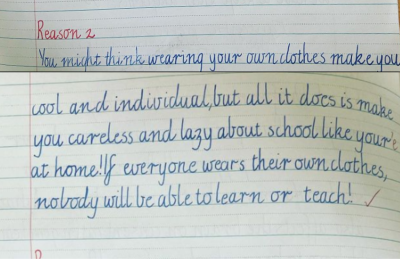 Reason 2
You might think wearing your own clothes make you
cool and individual, but all it does is make
you careless and lazy about school like you're
at home! If everyone wears their own clothes,
nobody will be able to learn or teach!